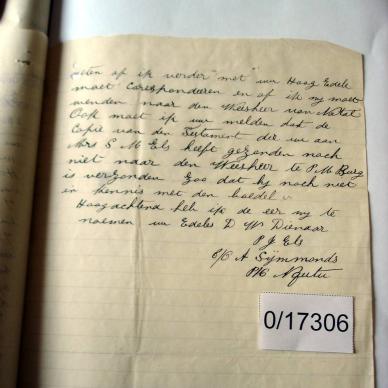 weten of ik verder "met" uw Hoog Edele
moet Coresponderen en of ik mij moet
wenden naar den Weesheer van Natal
Ook moet ik uw melden dat de
Copie van den Testament die uw aan
Mrs S M Els heeft gezonden noch
niet naar den Weesheer te P M Burg
is verzonden Zoo dat hij noch niet
in kennis met den boedel
Hoogachtend heb ik de eer mij te
noemen uw Edeles D W Dienaar
P J Els
C/O A Symmonds
P/O
0/17306